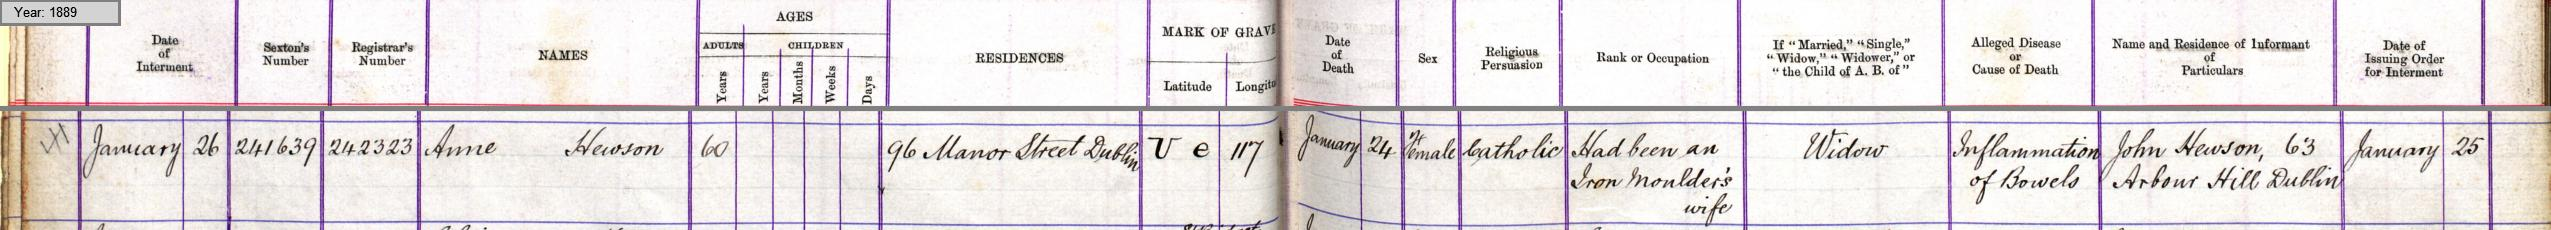 Year: 1889
Date of Interment
Sexton's Number
Registrar's Number
NAMES
AGES
ADULTS
CHILDREN
Years
Years
Months
Weeks
Days
RESIDENCES
MARK OF GRAVE
Latitude
Longitu
Date of Death
Sex
Religious Persuasion
Rank or Occupation
If "Married," "Single," "Widow," "Widower," or "the Child of A. B. of"
Alleged Disease or Cause of Death
Name and Residence of Informant of Particulars
Date of Issuing Order for Interment
January 26 241639 242323 Anne Hewson 60 96 Manor Street Dublin U e 117 January 24 Female Catholic Had been an Widow Inflammation John Hewson, 63 January 25
Iron Moulder's of Bowels Arbour Hill Dublin
wife